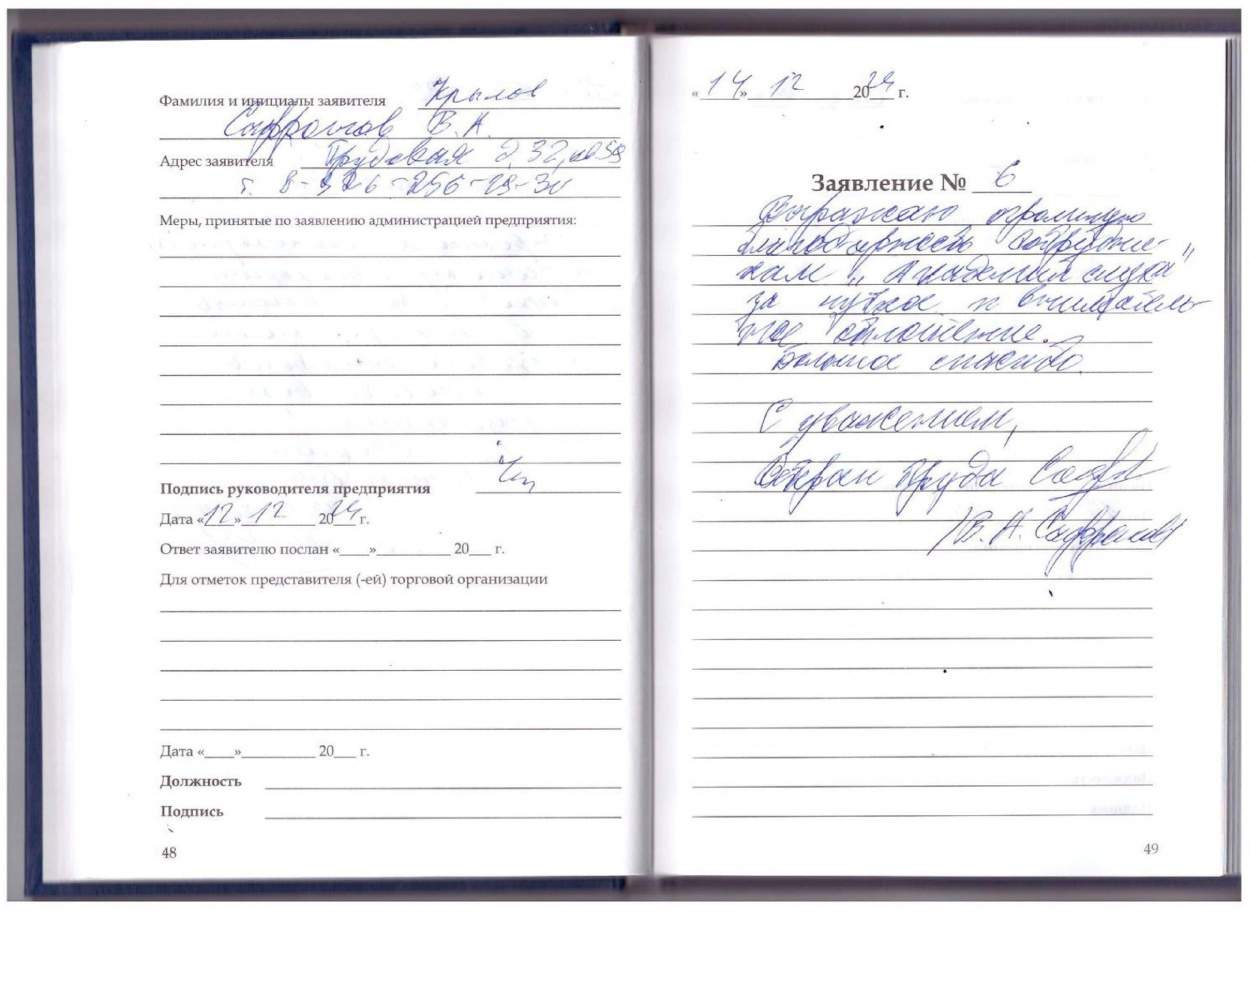 Фамилия и инициалы заявителя Крылов
Сафронов В.А.
Адрес заявителя Трудовая д. 32,
т. 8-926-256-19-30
Меры, принятые по заявлению администрацией предприятия:
Подпись руководителя предприятия
Дата «12» 12 2024 г.
Ответ заявителю послан «___»__________ 20___ г.
Для отметок представителя (-ей) торговой организации
Дата «____»__________ 20___ г.
Должность
Подпись
48
«14» 12 2024 г.
Заявление № 6
Выражаю огромную
благодарность сотрудни-
кам „Академия слуха"
за чуткое и вниматель
ное отношение.
Большое спасибо.
С уважением,
Ветеран труда
/В.А. Сафронов/
49